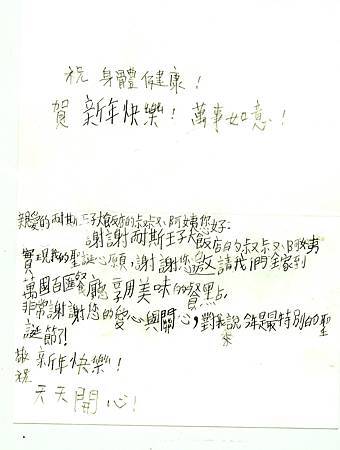 祝 身體健康!
賀 新年快樂! 萬事如意!
親愛的耐斯王子大飯店的叔叔、阿姨您好:
謝謝耐斯王子大飯店的叔叔、阿姨
實現我的聖誕心願,謝謝您邀請我們全家到
萬國百匯餐廳享用美味的餐點,
非常謝謝您的愛心與關心,對我來說今年是最特別的聖
誕節了!
敬祝 新年快樂!
天天開心!